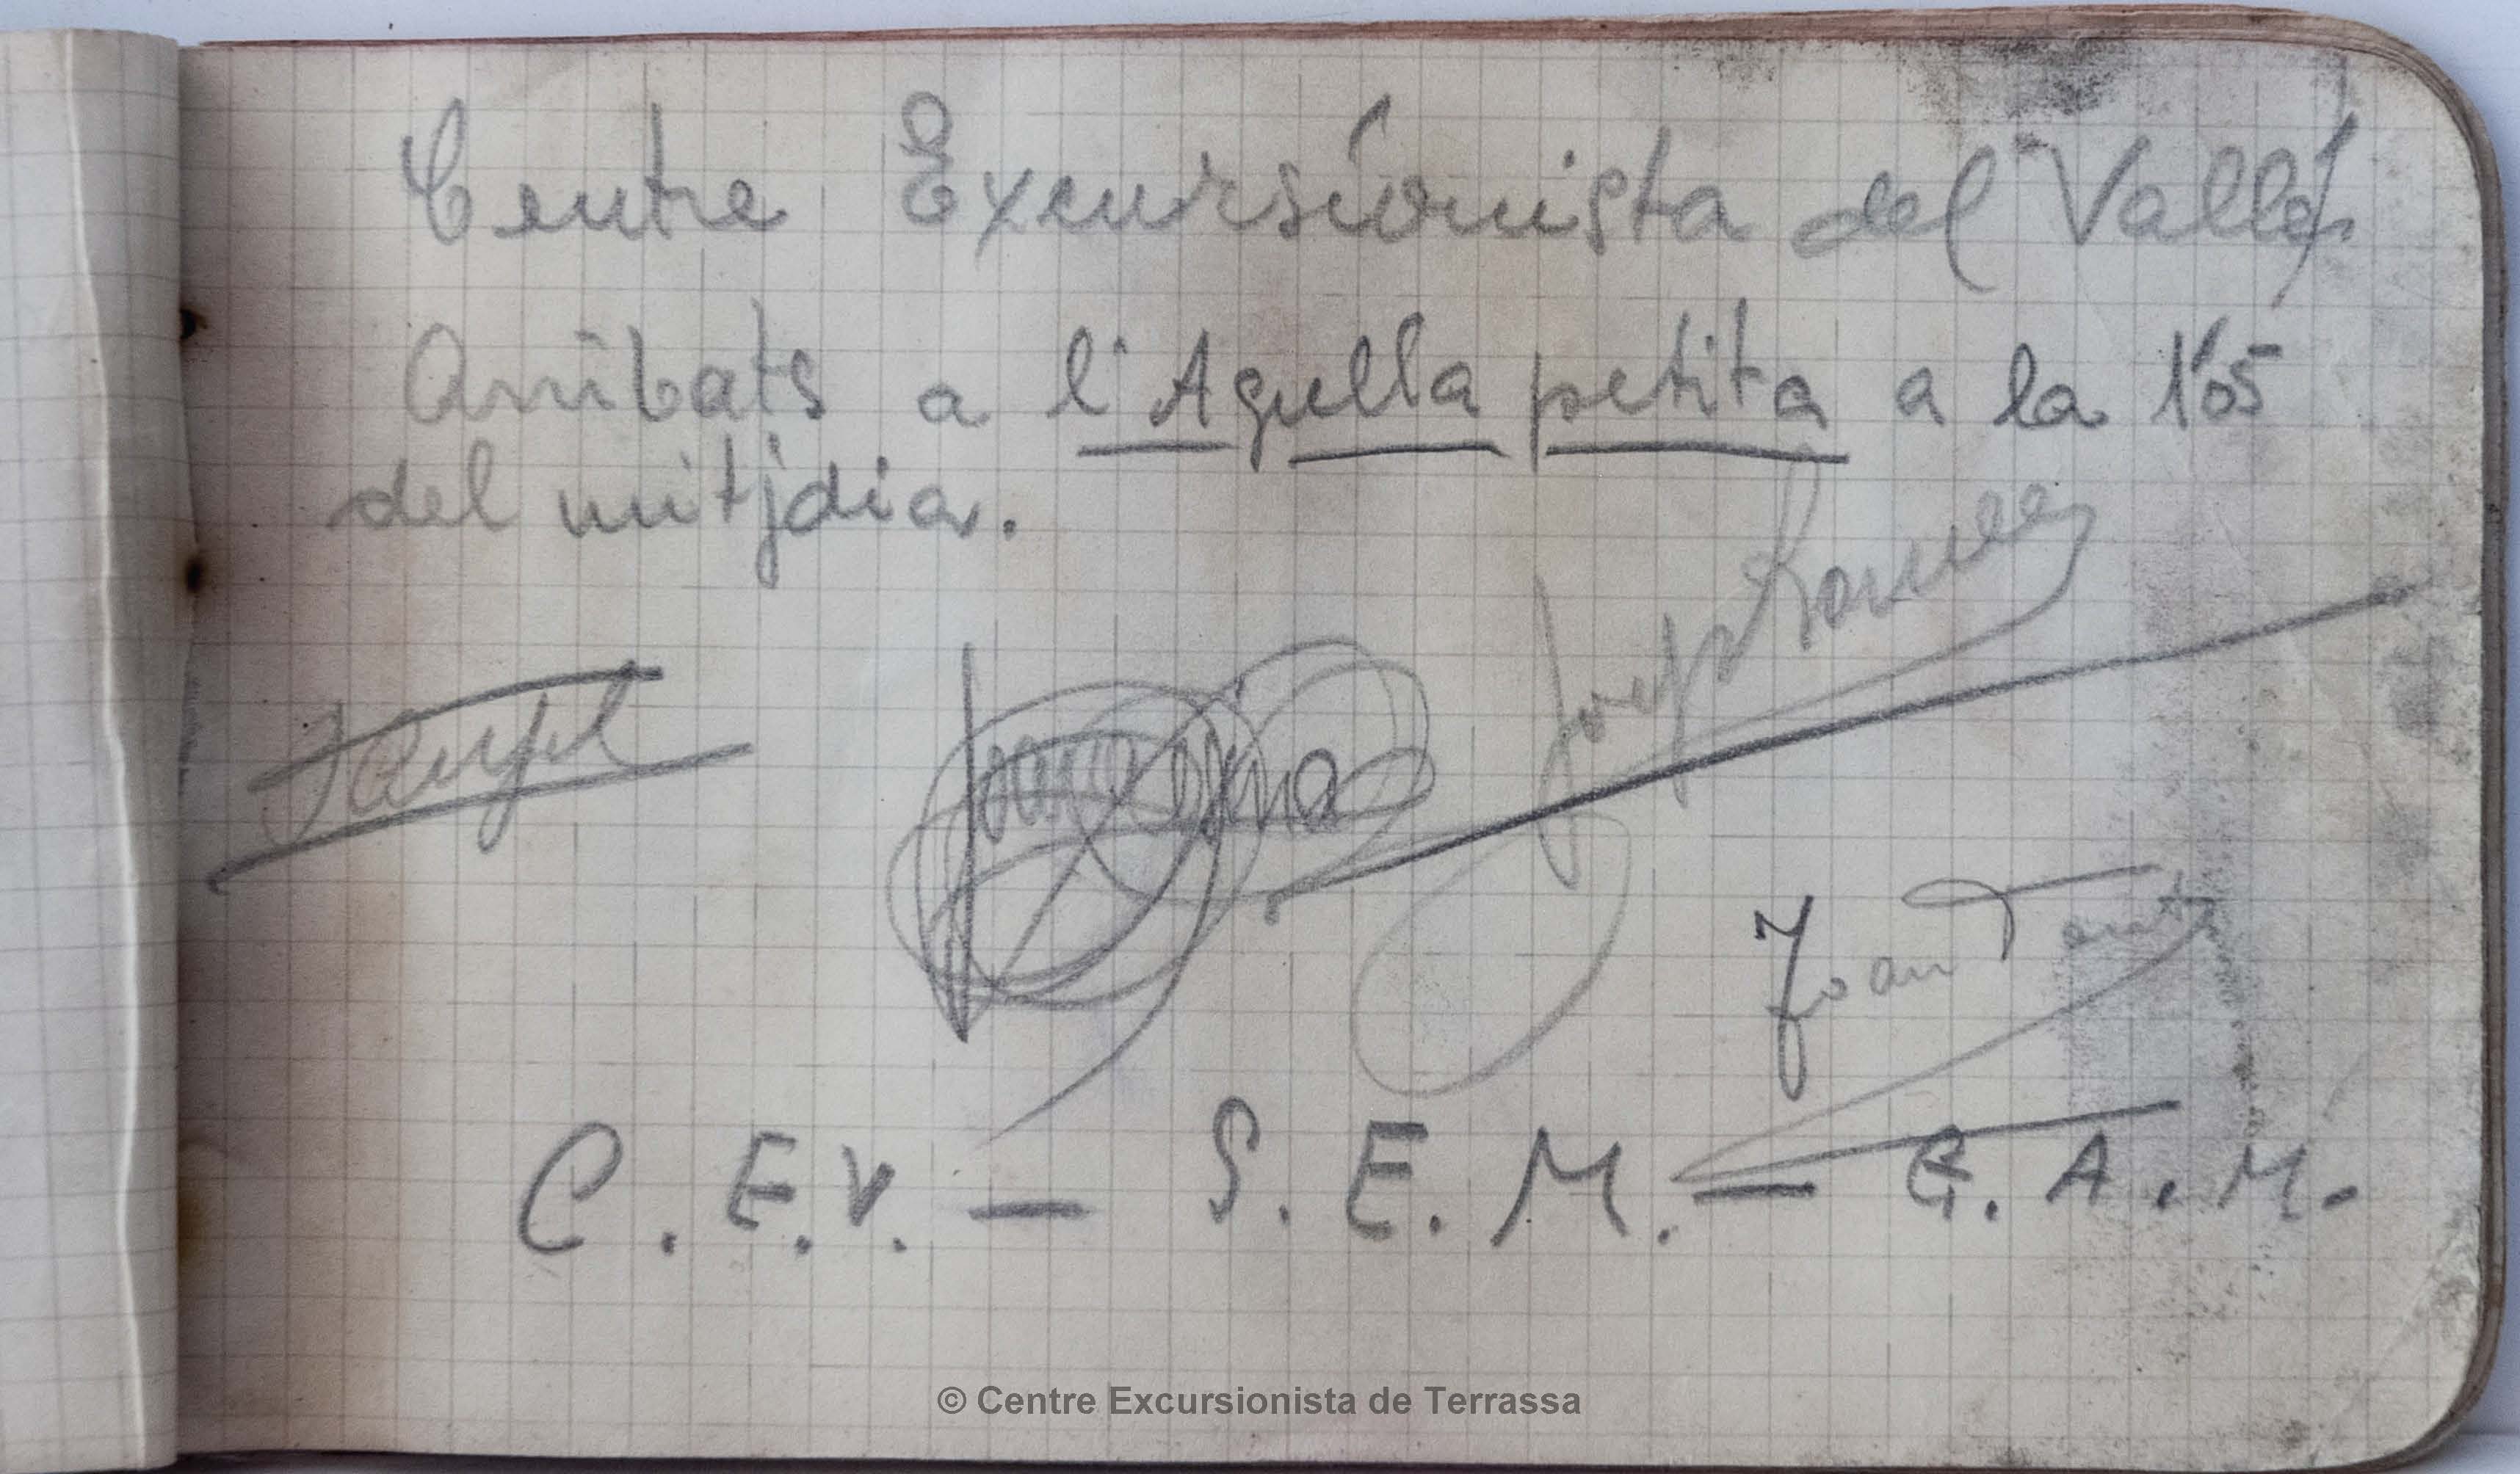 Centre Excursionista del Vallés
Arribats a l'Agulla petita a la 1'05
del mitjdia.
Josep
Joan
C. E. V. — S. E. M. — G. A. M.
© Centre Excursionista de Terrassa